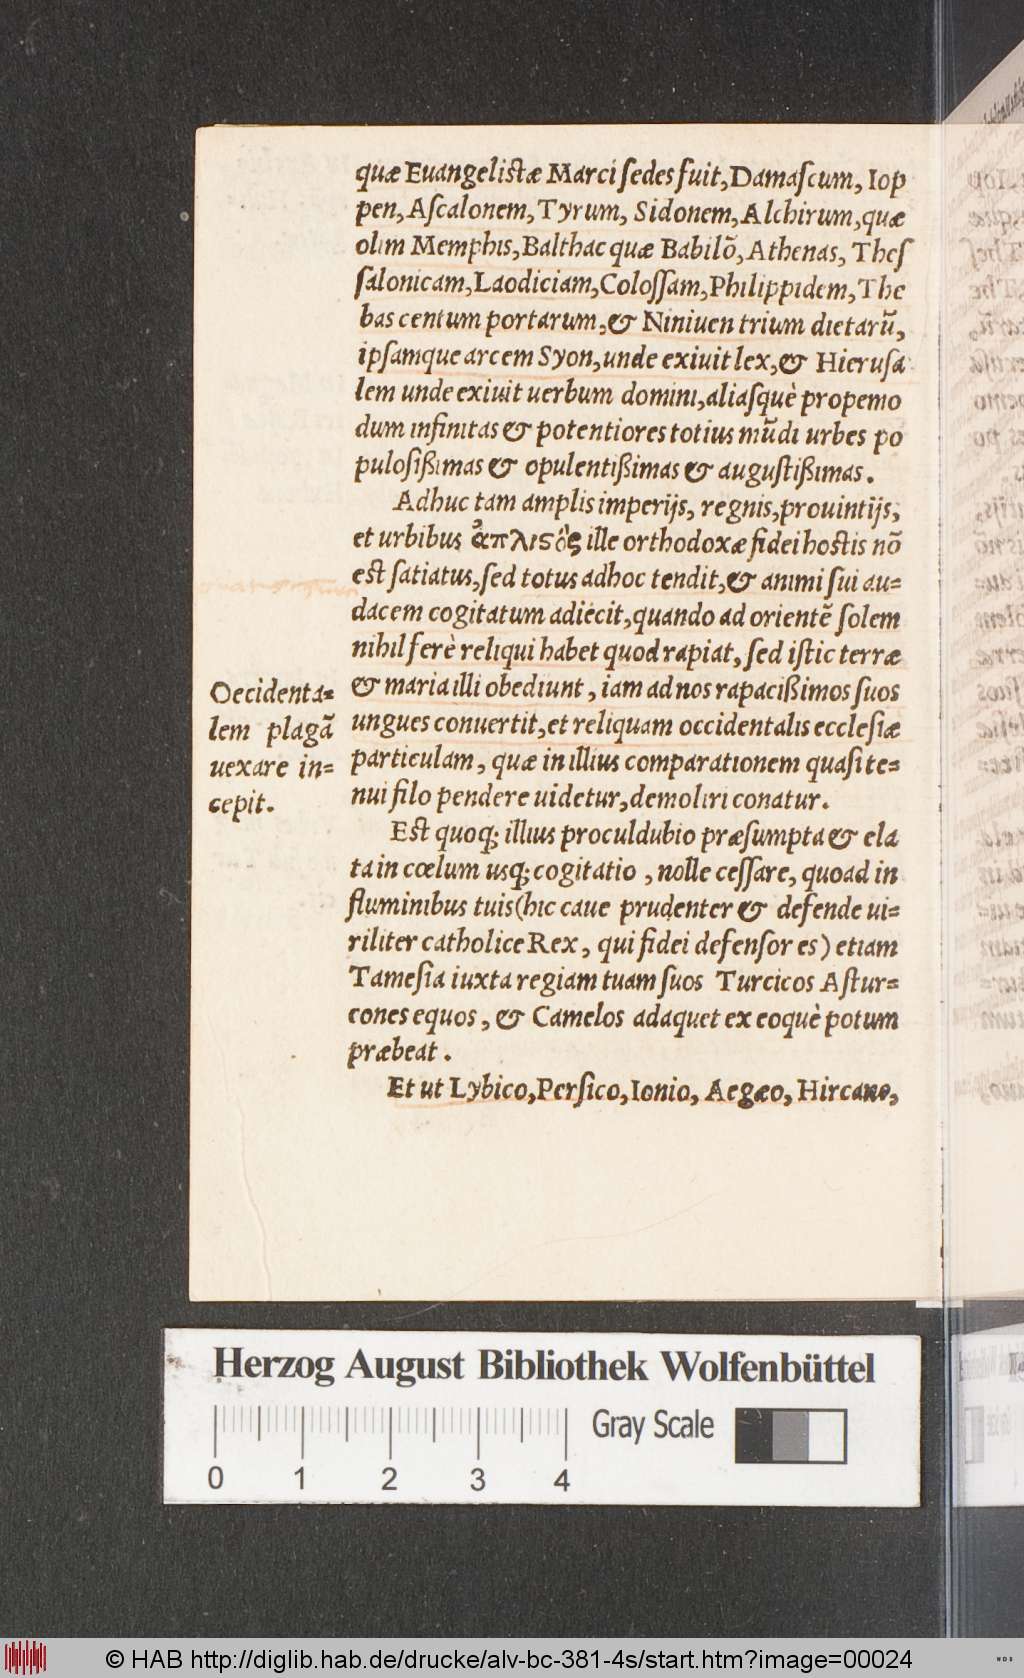 quæ Euangelistæ Marci ſedes fuit, Damaſcum, Iop
pen, Aſcalonem, Tyrum, Sidonem, Alchirum, quæ
olim Memphis, Balthac quæ Babilõ, Athenas, Theſ
ſalonicam, Laodiciam, Coloſſam, Philippidem, The
bas centum portarum, & Niniuen trium dietarũ,
ipſamque arcem Syon, unde exiuit lex, & Hieruſa
lem unde exiuit uerbum domini, aliaſquè propemo
dum infinitas & potentiores totius mũdi urbes po
puloſißimas & opulentißimas & auguſtißimas.
Adhuc tam amplis imperijs, regnis, prouintijs,
et urbibus ἄπλιϛὸς ille orthodoxæ fidei hoſtis nõ
eſt ſatiatus, ſed totus adhoc tendit, & animi ſui au=
dacem cogitatum adiecit, quando ad orientẽ ſolem
nihil ferè reliqui habet quod rapiat, ſed iſtic terræ
& maria illi obediunt, iam ad nos rapacißimos ſuos
ungues conuertit, et reliquam occidentalis eccleſiæ
particulam, quæ in illius comparationem quaſi te=
nui filo pendere uidetur, demoliri conatur.
Occidenta=
lem plagã
uexare in=
cepit.
Eſt quoq; illius proculdubio præſumpta & ela
ta in cœlum uſq; cogitatio, nolle ceſſare, quoad in
fluminibus tuis (hic caue prudenter & defende ui=
riliter catholice Rex, qui fidei defenſor es) etiam
Tameſia iuxta regiam tuam ſuos Turcicos Aſtur=
cones equos, & Camelos adaquet ex eoquè potum
præbeat.
Et ut Lybico, Perſico, Ionio, Aegæo, Hircano,
Herzog August Bibliothek Wolfenbüttel
Gray Scale
0 1 2 3 4
© HAB http://diglib.hab.de/drucke/alv-bc-381-4s/start.htm?image=00024